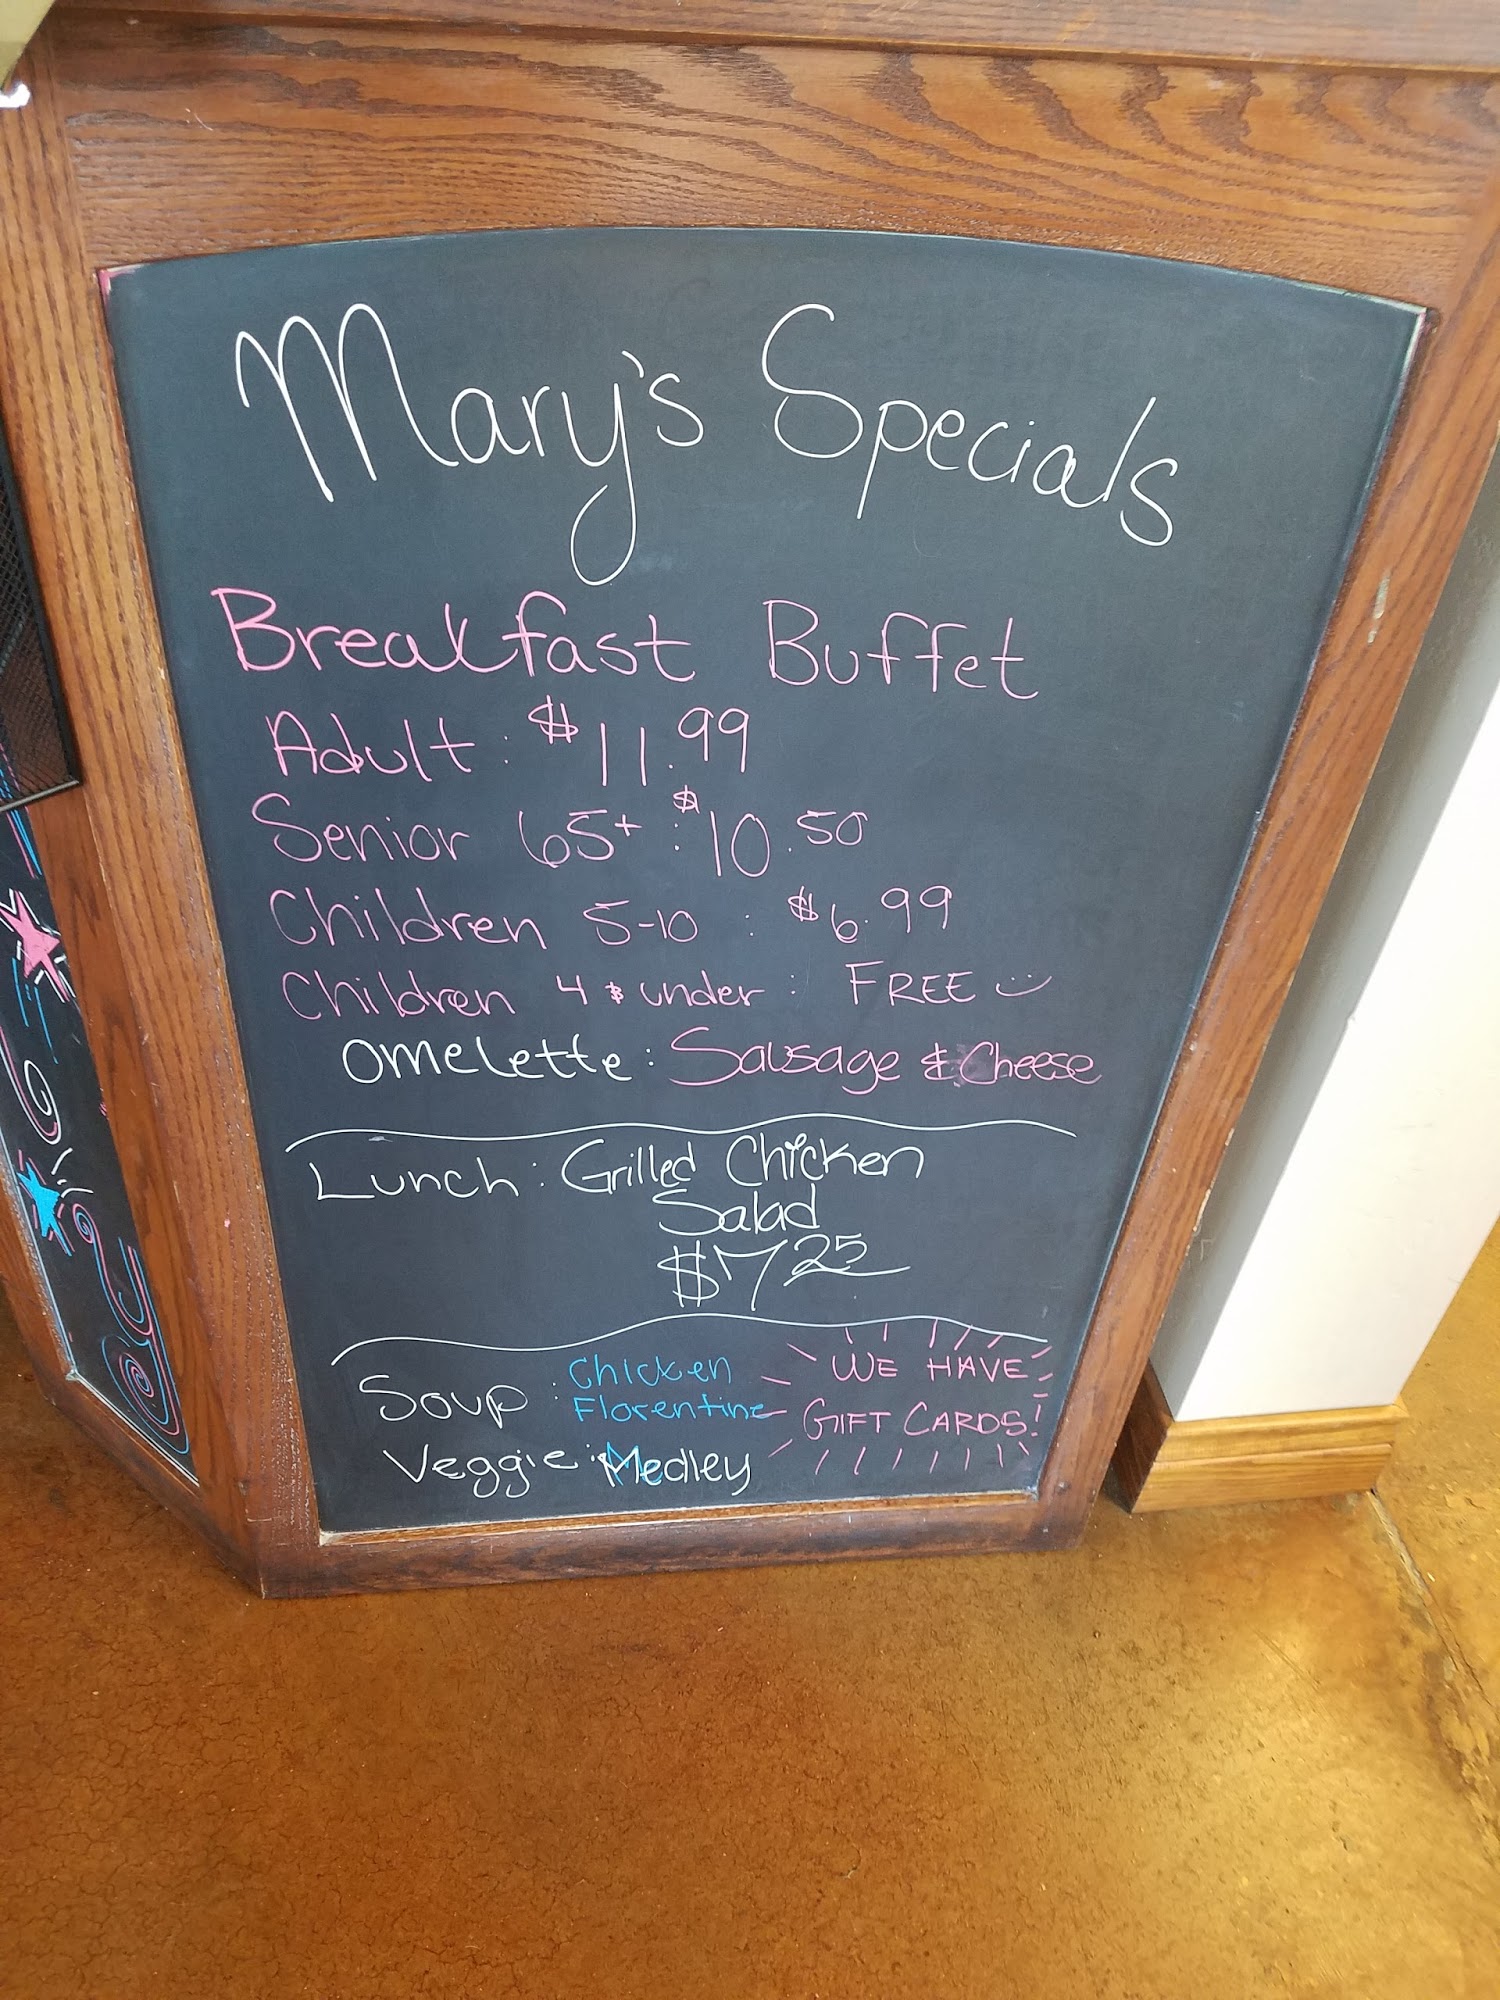 Mary's Specials
Breakfast Buffet
Adult: $11.99
Senior 65+: $10.50
Children 5-10: $6.99
Children 4 & under: FREE
Omelette: Sausage & Cheese
Lunch: Grilled Chicken
Salad
$7.25
Soup: Chicken
Florentine
Veggie: Medley
WE HAVE
GIFT CARDS!